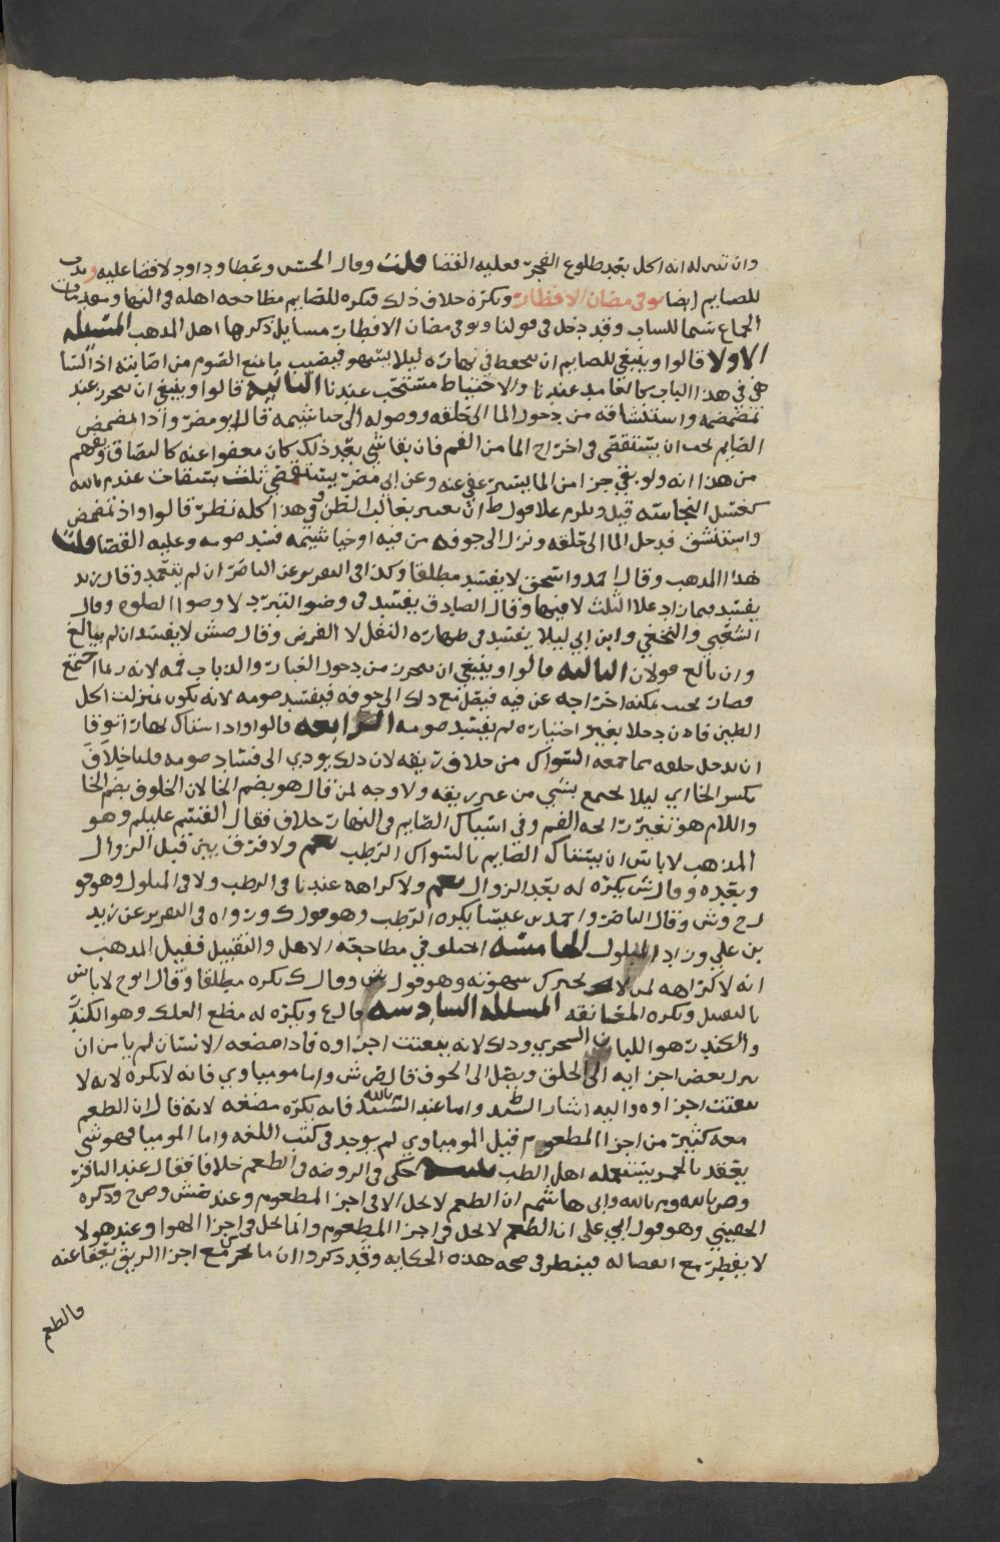 وان تبين له انه اكل بعد طلوع الفجر فعليه القضا قلت وقال الحسن وعطا وداود لا قضا عليه وندب
للصايم ايضا توقي مضان الافطار ويكره خلاف ذلك فيكره للصايم مضاجعة اهله في النهار ومقدمات
الجماع سيما للشاب وقد دخل في قولنا وتوقي مضان الافطار مسايل ذكرها اهل المذهب المسئله
الاولا قالوا وينبغي للصايم ان يتحفظ في نهاره ليلا يسهو فيصيب ما يمنع الصوم من اصابته اذ الناسا
هي في هذا الباب كالعامد عندنا والاحتياط مستحب عندنا الثانيه قالوا وينبغي ان يتحرز عند
تمضمضه واستنشاقه من دخول الما الى حلقه ووصوله الى خياشيمه قال ابو مضر واذا تمضمض
الصايم يجب ان يستقصي في اخراج الما من الفم فان بقا شي بعد ذلك كان معفوا عنه كالبصاق وفهم
من هذا انه ولو بقي جزا من الما اليسير عفي عنه وعن ابي مضر يستقصي ثلث بسقات عند م بالله
كغسل النجاسه قيل ويلزم علا قول ط ان يعتبر بغالب الظن وفي هذا كله نظر قالوا واذا تمضمض
واستنشق فدخل الما الى حلقه ونزل الى جوفه من فيه او خياشيمه فسد صومه وعليه القضا قلت
هذا المذهب وقال احمد واسحق لا يفسد مطلقا وكذا في التحرير عن الناصر ان لم يتعمد وقال زيد
يفسد فيما زاد علا الثلث لا فيها وقال الصادق يفسد في وضو التبرد لا وضوا الصلوه وقال
الشعبي والنخعي وابن ابي ليلا يفسد في طهارة النفل لا الفرض وقال ص ش لا يفسد ان لم يبالغ
وان بالغ فقولان الثالثه قالوا وينبغي ان يتحرز من دخول الغبار والذباب فمه لانه ربما اجتمع
فصار بحيث يمكنه اخراجه عن فيه فيصل مع ذلك الى جوفه فيفسد صومه لانه يكون بمنزلت اكل
الطين فاذا دخلا بغير اختياره لم يفسد صومه الرابعه قالوا واذا استاك نهارا توقا
ان يدخل حلقه مما جمعه السواك من خلاف ريقه لان ذلك يودي الى فساد صومه قلنا خلاف
بكسر الخا اي ليلا يجتمع بشي من غير ريقه ولا وجه لمن قال هو بضم الخا لان الخلوف بضم الخا
واللام هو تغير رايحه الفم وفي استياك الصايم في النهار خلاف فقال القسم عليلم وهو
المذهب لا باس ان يستاك الصايم بالسواك الرطب نعم ولا فرق بين قبل الزوال
وبعده وقال ش يكره له بعد الزوال نعم ولا كراهه عندنا في الرطب ولا في المبلول وهو قو
ل ح وش وقال الناصر واحمد بن عيسا يكره الرطب وهو قول ك ورواه في التحرير عن زيد
بن علي وزاد المبلول الخامسه اختلف في مضاجعة الاهل والتقبيل فقيل المذهب
انه لا كراهه لمن لا تحرك شهوته وهو قول ش وقال ك يكره مطلقا وقال ابو ح لا باس
بالتقبيل ويكره المعانقه المسئله السادسه قال ع ويكره له مضغ العلك وهو الكندر
والكندر هو اللبان الشحري وذلك لانه يتفتت اجزاوه فاذا مضغه الانسان لم يامن ان
ينزل بعض اجزايه الى الحلق ويصل الى الجوف قال ض ش واما موميا وي فانه لا يكره لانه لا
يتفتت اجزاوه واليه اشار السيد واما عند الشيد بالله فانه يكره مضغه لانه قال ان الطعم
معه كثير من اجزا المطعوم قيل الموميا وي لم يوجد في كتب اللغه واما الموميا فهو شي
يعقد بالخمر يستعمله اهل الطب حكى في الروضه في الطعم خلافا فقال عند الباقر
وص بالله وم بالله وابي هاشم ان الطعم لا يحل الا في اجزا المطعوم وعند ض ش وص ح وذكره
الحقيني وهو قول ابي علي ان الطعم لا يحل في اجزا المطعوم وانما يحل في اجزا الهوا وعند هولا
لا يفطر مع انفصاله فينظر في صحه هذه الحكايه وقد ذكروا ان ما تحرك مع اجزا الريق يعفا عنه
فالطعم